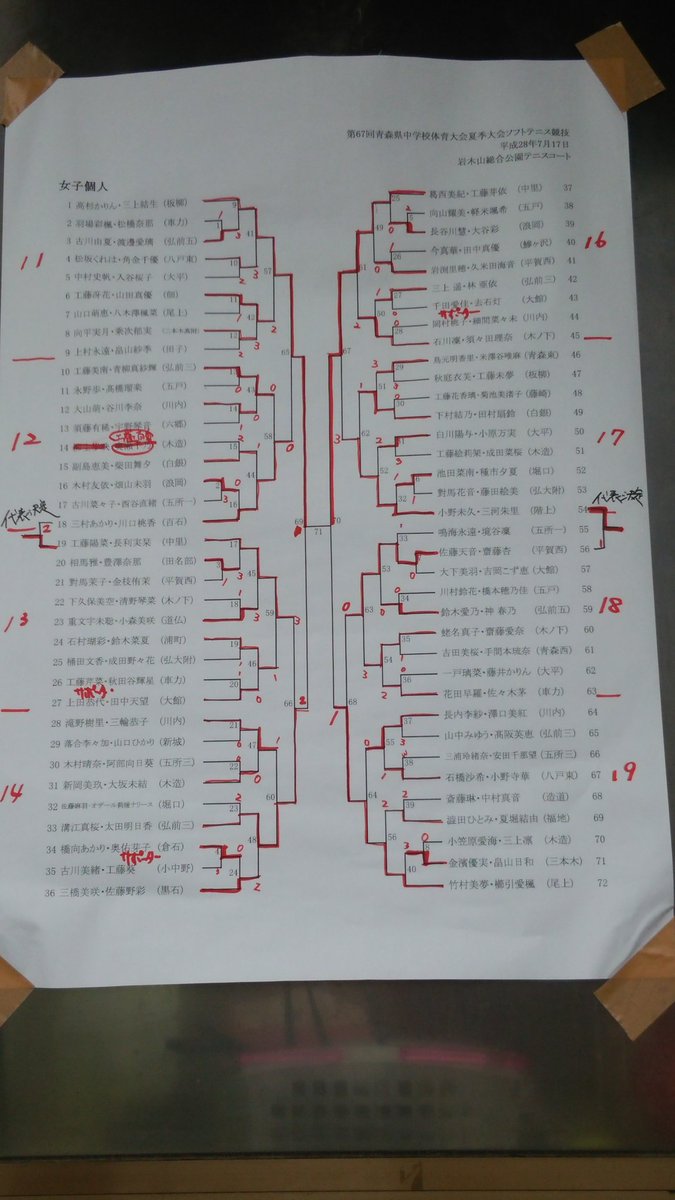 第67回青森県中学校体育大会夏季大会ソフトテニス競技
平成28年7月17日
岩木山総合公園テニスコート
女子個人
1 高村かりん・三上結生 (板柳)
2 羽場彩楓・松橋奈那 (車力)
3 古川由夏・渡邊愛璃 (弘前五)
4 松坂くれは・角金千優 (八戸東)
5 中村史帆・入谷桜子 (大平)
6 工藤冴花・山田真優 (佃)
7 山口萌恵・八木澤楓菜 (尾上)
8 向平実月・乗次郁実
9 上村永遠・畠山紗季 (田子)
10 工藤美南・青柳真紗輝 (弘前三)
11 永野歩・髙橋瑠楽 (五戸)
12 大山萌・谷川李奈 (川内)
13 須藤有稀・宇野琴音 (六郷)
14 (木造)
15 副島恵美・柴田舞夕 (白銀)
16 木村友依・畑山未羽 (浪岡)
17 古川菜々子・西谷直緒 (五所一)
18 三村あかり・川口桃香 (百石)
19 工藤陽菜・長利実栞 (中里)
20 相馬雅・豊澤奈那 (田名部)
21 對馬茉子・金枝侑茉 (平賀西)
22 下久保美空・清野琴菜 (木ノ下)
23 重文字未聡・小森美咲 (道仏)
24 石村瑚彩・鈴木菜夏 (浦町)
25 桶田文香・成田野々花 (弘大附)
26 工藤芹菜・秋田谷輝星 (車力)
27 上田恭代・田中天望 (大館)
28 滝野樹里・三輪恭子 (川内)
29 落合李々加・山口ひかり (新城)
30 木村晴奈・阿部向日葵 (五所三)
31 新岡美玖・大坂未結 (木造)
32 (堀口)
33 溝江真桜・太田明日香 (弘前三)
34 橋向あかり・奥佑芽子 (倉石)
35 古川美緒・工藤葵 (小中野)
36 三橋美咲・佐藤野彩 (黒石)
葛西美紀・工藤芽依 (中里) 37
向山耀美・軽米颯希 (五戸) 38
長谷川慧・大谷彩 (浪岡) 39
今真華・田中真優 (鰺ヶ沢) 40
岩渕里穂・久米田海音 (平賀西) 41
三上遥・林亜依 (弘前三) 42
千田愛佳・去石灯 (大館) 43
岡村桃子・細間菜々未 (川内) 44
石川凛・須々田理奈 (木ノ下) 45
鳥元明香里・米澤谷唯麻 (青森東) 46
秋庭衣芙・工藤未夢 (板柳) 47
工藤花香璃・菊池美渚子 (藤崎) 48
下村結乃・田村扇鈴 (白銀) 49
白川陽与・小原万実 (大平) 50
工藤絵莉菜・成田菜桜 (木造) 51
池田菜南・種市夕夏 (堀口) 52
對馬花音・藤田絵美 (弘大附) 53
小野未久・三河朱里 (階上) 54
鳴海永遠・境谷凜 (五所一) 55
佐藤天音・齋藤杏 (平賀西) 56
大下美羽・吉岡こず恵 (大館) 57
川村鈴花・橋本穂乃佳 (五戸) 58
鈴木愛乃・神春乃 (弘前五) 59
蛯名真子・齋藤愛奈 (木ノ下) 60
吉田美桜・手間本琉奈 (青森西) 61
一戸璃菜・藤井かりん (大平) 62
花田早羅・佐々木茅 (車力) 63
長内李紗・澤口美紅 (川内) 64
山中みゆう・髙阪英恵 (弘前三) 65
三浦玲緒奈・安田千那望 (五所三) 66
石橋沙希・小野寺華 (八戸東) 67
斎藤琳・中村真音 (造道) 68
澁田ひとみ・夏堀結由 (福地) 69
小笠原愛海・三上凛 (木造) 70
金濱優実・畠山日和 (三本木) 71
竹村美夢・櫛引愛楓 (尾上) 72
11
12
13
14
16
17
18
19
代表決定
代表決定
サポーター
サポーター
サポーター